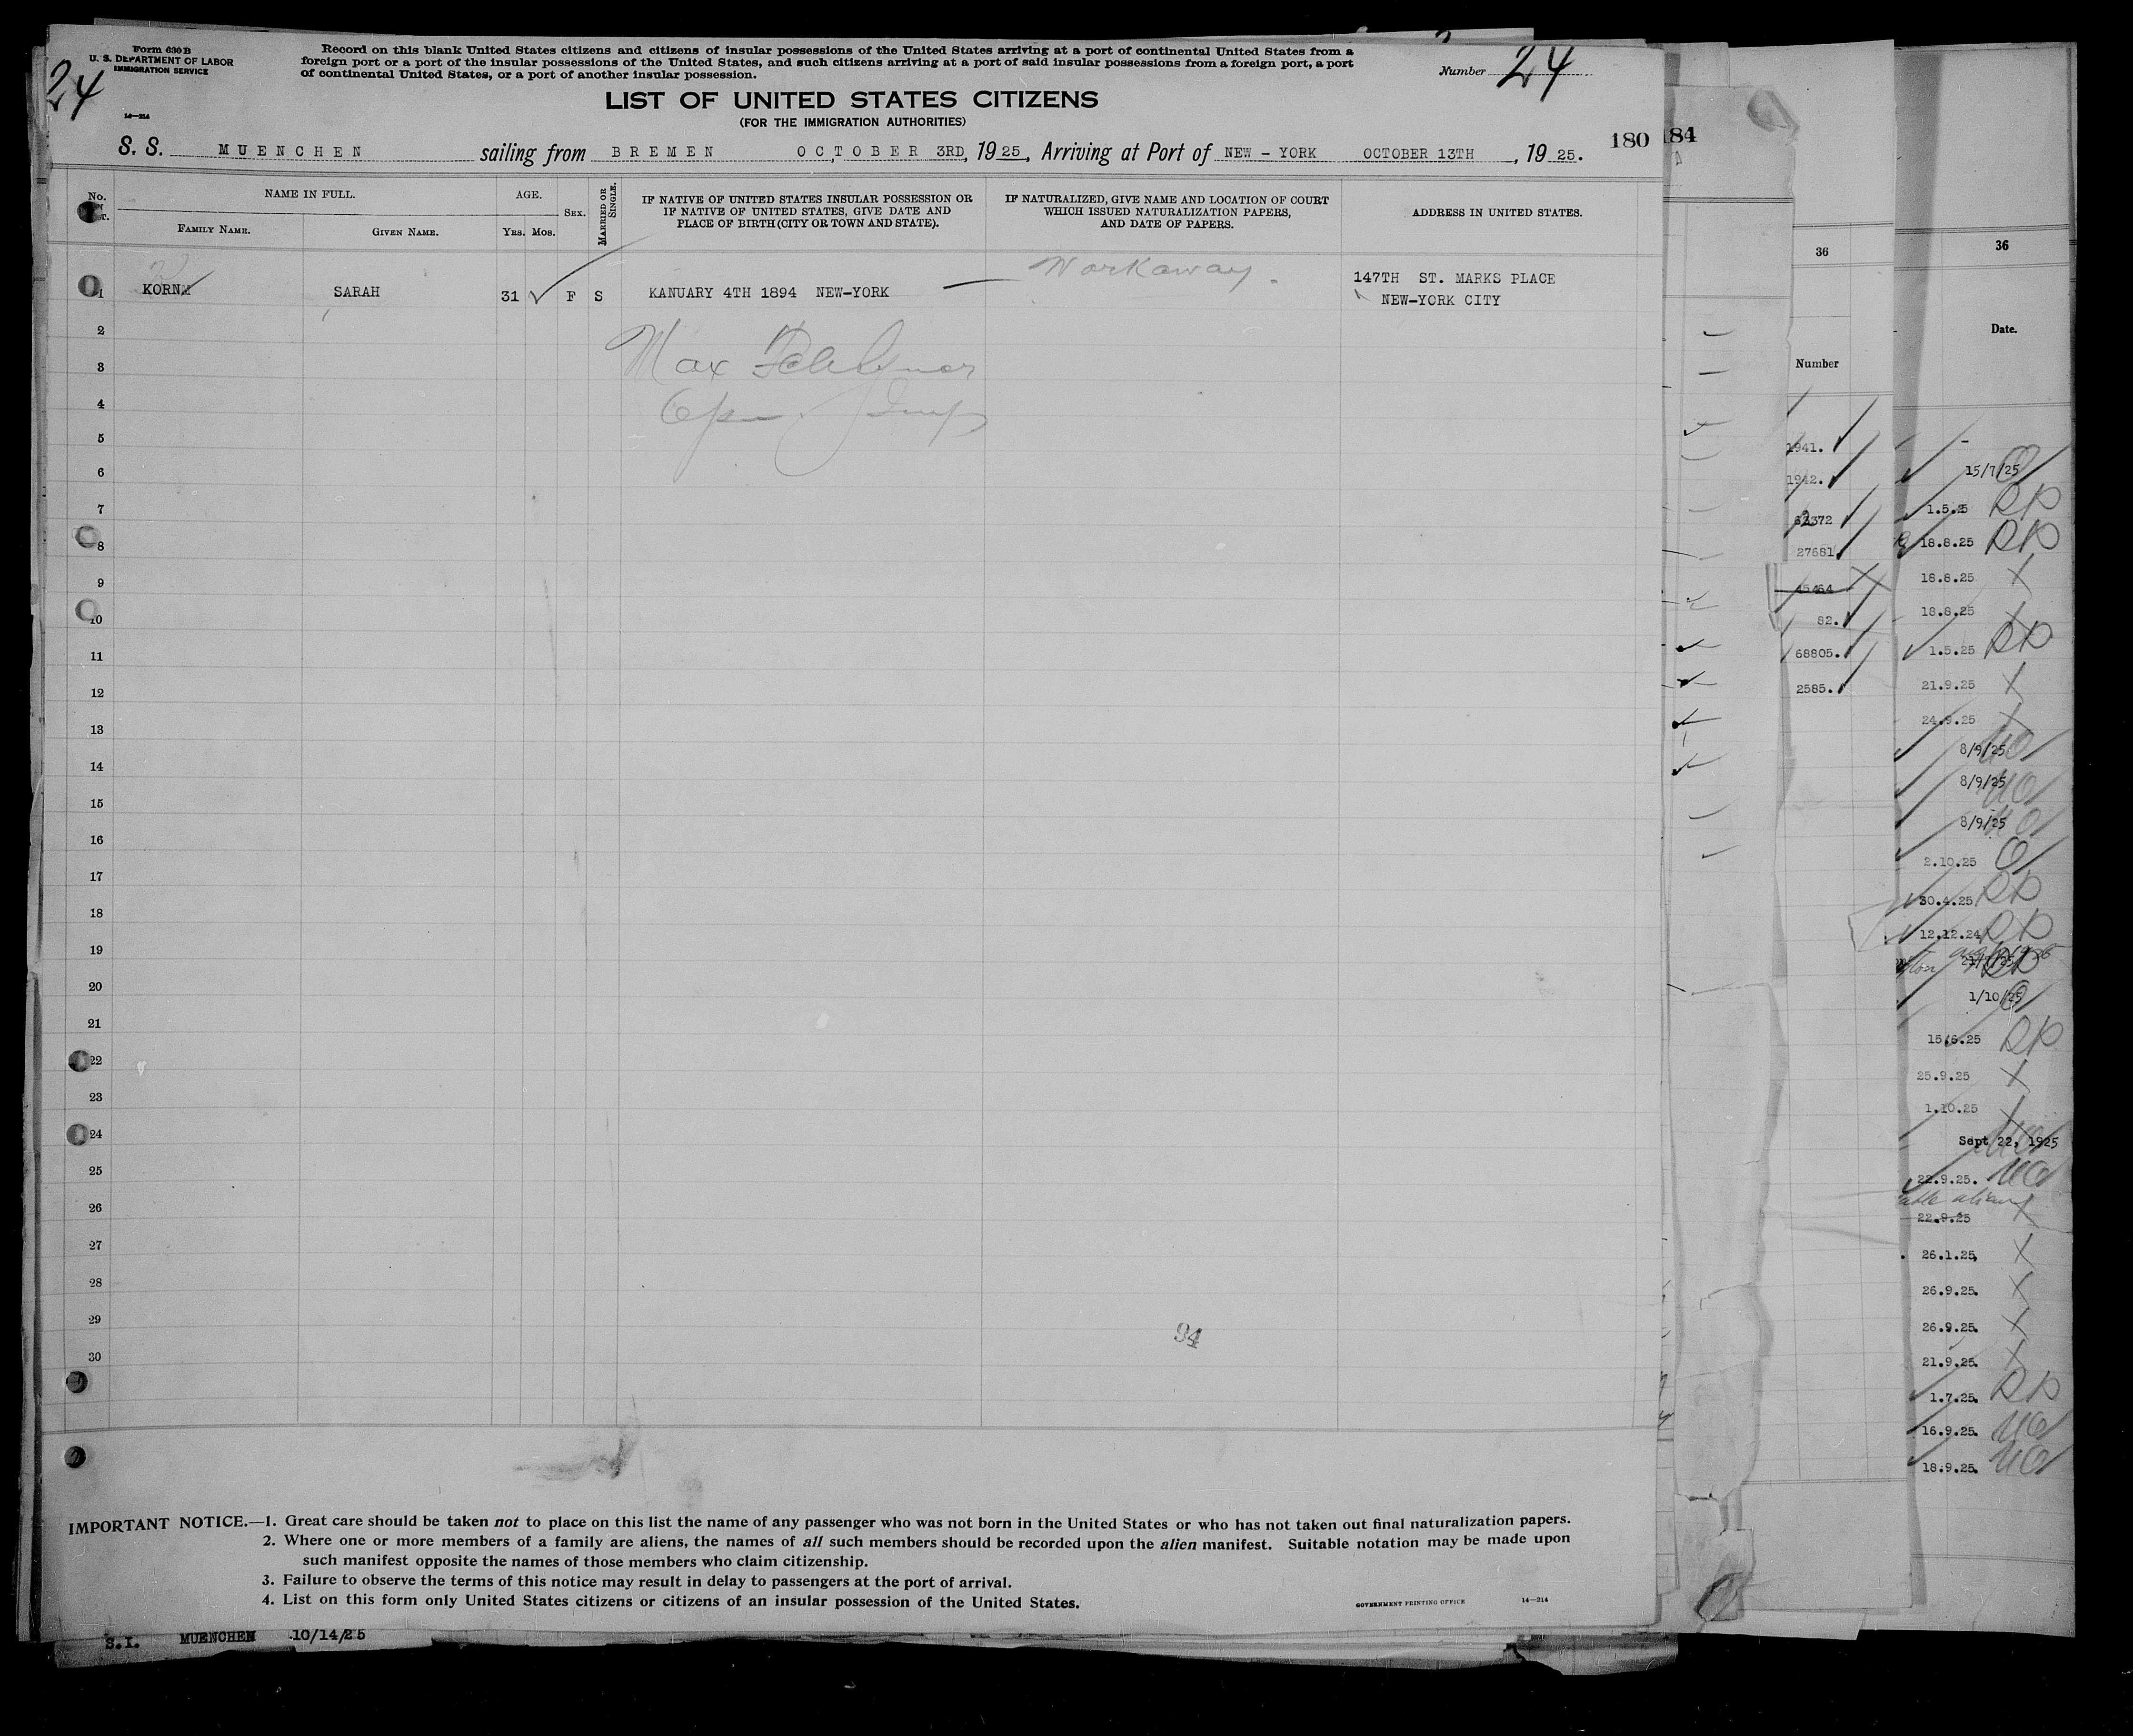 Form 630 B
U. S. DEPARTMENT OF LABOR
IMMIGRATION SERVICE
14—214
24
Record on this blank United States citizens and citizens of insular possessions of the United States arriving at a port of continental United States from a
foreign port or a port of the insular possessions of the United States, and such citizens arriving at a port of said insular possessions from a foreign port, a port
of continental United States, or a port of another insular possession.
Number 24
LIST OF UNITED STATES CITIZENS
(FOR THE IMMIGRATION AUTHORITIES)
180 184
S. S. MUENCHEN sailing from BREMEN OCTOBER 3RD, 1925, Arriving at Port of NEW – YORK OCTOBER 13TH, 1925.
No.
NAME IN FULL.
FAMILY NAME.
GIVEN NAME.
AGE.
YRS. MOS.
SEX.
MARRIED OR SINGLE.
IF NATIVE OF UNITED STATES INSULAR POSSESSION OR
IF NATIVE OF UNITED STATES, GIVE DATE AND
PLACE OF BIRTH (CITY OR TOWN AND STATE).
IF NATURALIZED, GIVE NAME AND LOCATION OF COURT
WHICH ISSUED NATURALIZATION PAPERS,
AND DATE OF PAPERS.
ADDRESS IN UNITED STATES.
Workaway.
1 KORN SARAH 31 F S KANUARY 4TH 1894 NEW-YORK 147TH ST. MARKS PLACE
NEW-YORK CITY
2
Max
3
4
5
6
7
8
9
10
11
12
13
14
15
16
17
18
19
20
21
22
23
24
25
26
27
28
29
94
30
IMPORTANT NOTICE.—1. Great care should be taken not to place on this list the name of any passenger who was not born in the United States or who has not taken out final naturalization papers.
2. Where one or more members of a family are aliens, the names of all such members should be recorded upon the alien manifest. Suitable notation may be made upon
such manifest opposite the names of those members who claim citizenship.
3. Failure to observe the terms of this notice may result in delay to passengers at the port of arrival.
4. List on this form only United States citizens or citizens of an insular possession of the United States.
GOVERNMENT PRINTING OFFICE 14—214
S.I. MUENCHEN 10/14/25
36
Number
1941.
1942.
27681
45464
82.
68805.
2585.
36
Date.
15/7/25
1.5.25
18.8.25
18.8.25
18.8.25
1.5.25
21.9.25
24.9.25
8/9/25
8/9/25
8/9/25
2.10.25
30.4.25
12.12.24
1/10/25
15/6.25
25.9.25
1.10.25
Sept 22, 1925
22.9.25.
22.9.25
26.1.25.
26.9.25.
26.9.25.
21.9.25.
1.7.25.
16.9.25.
18.9.25.